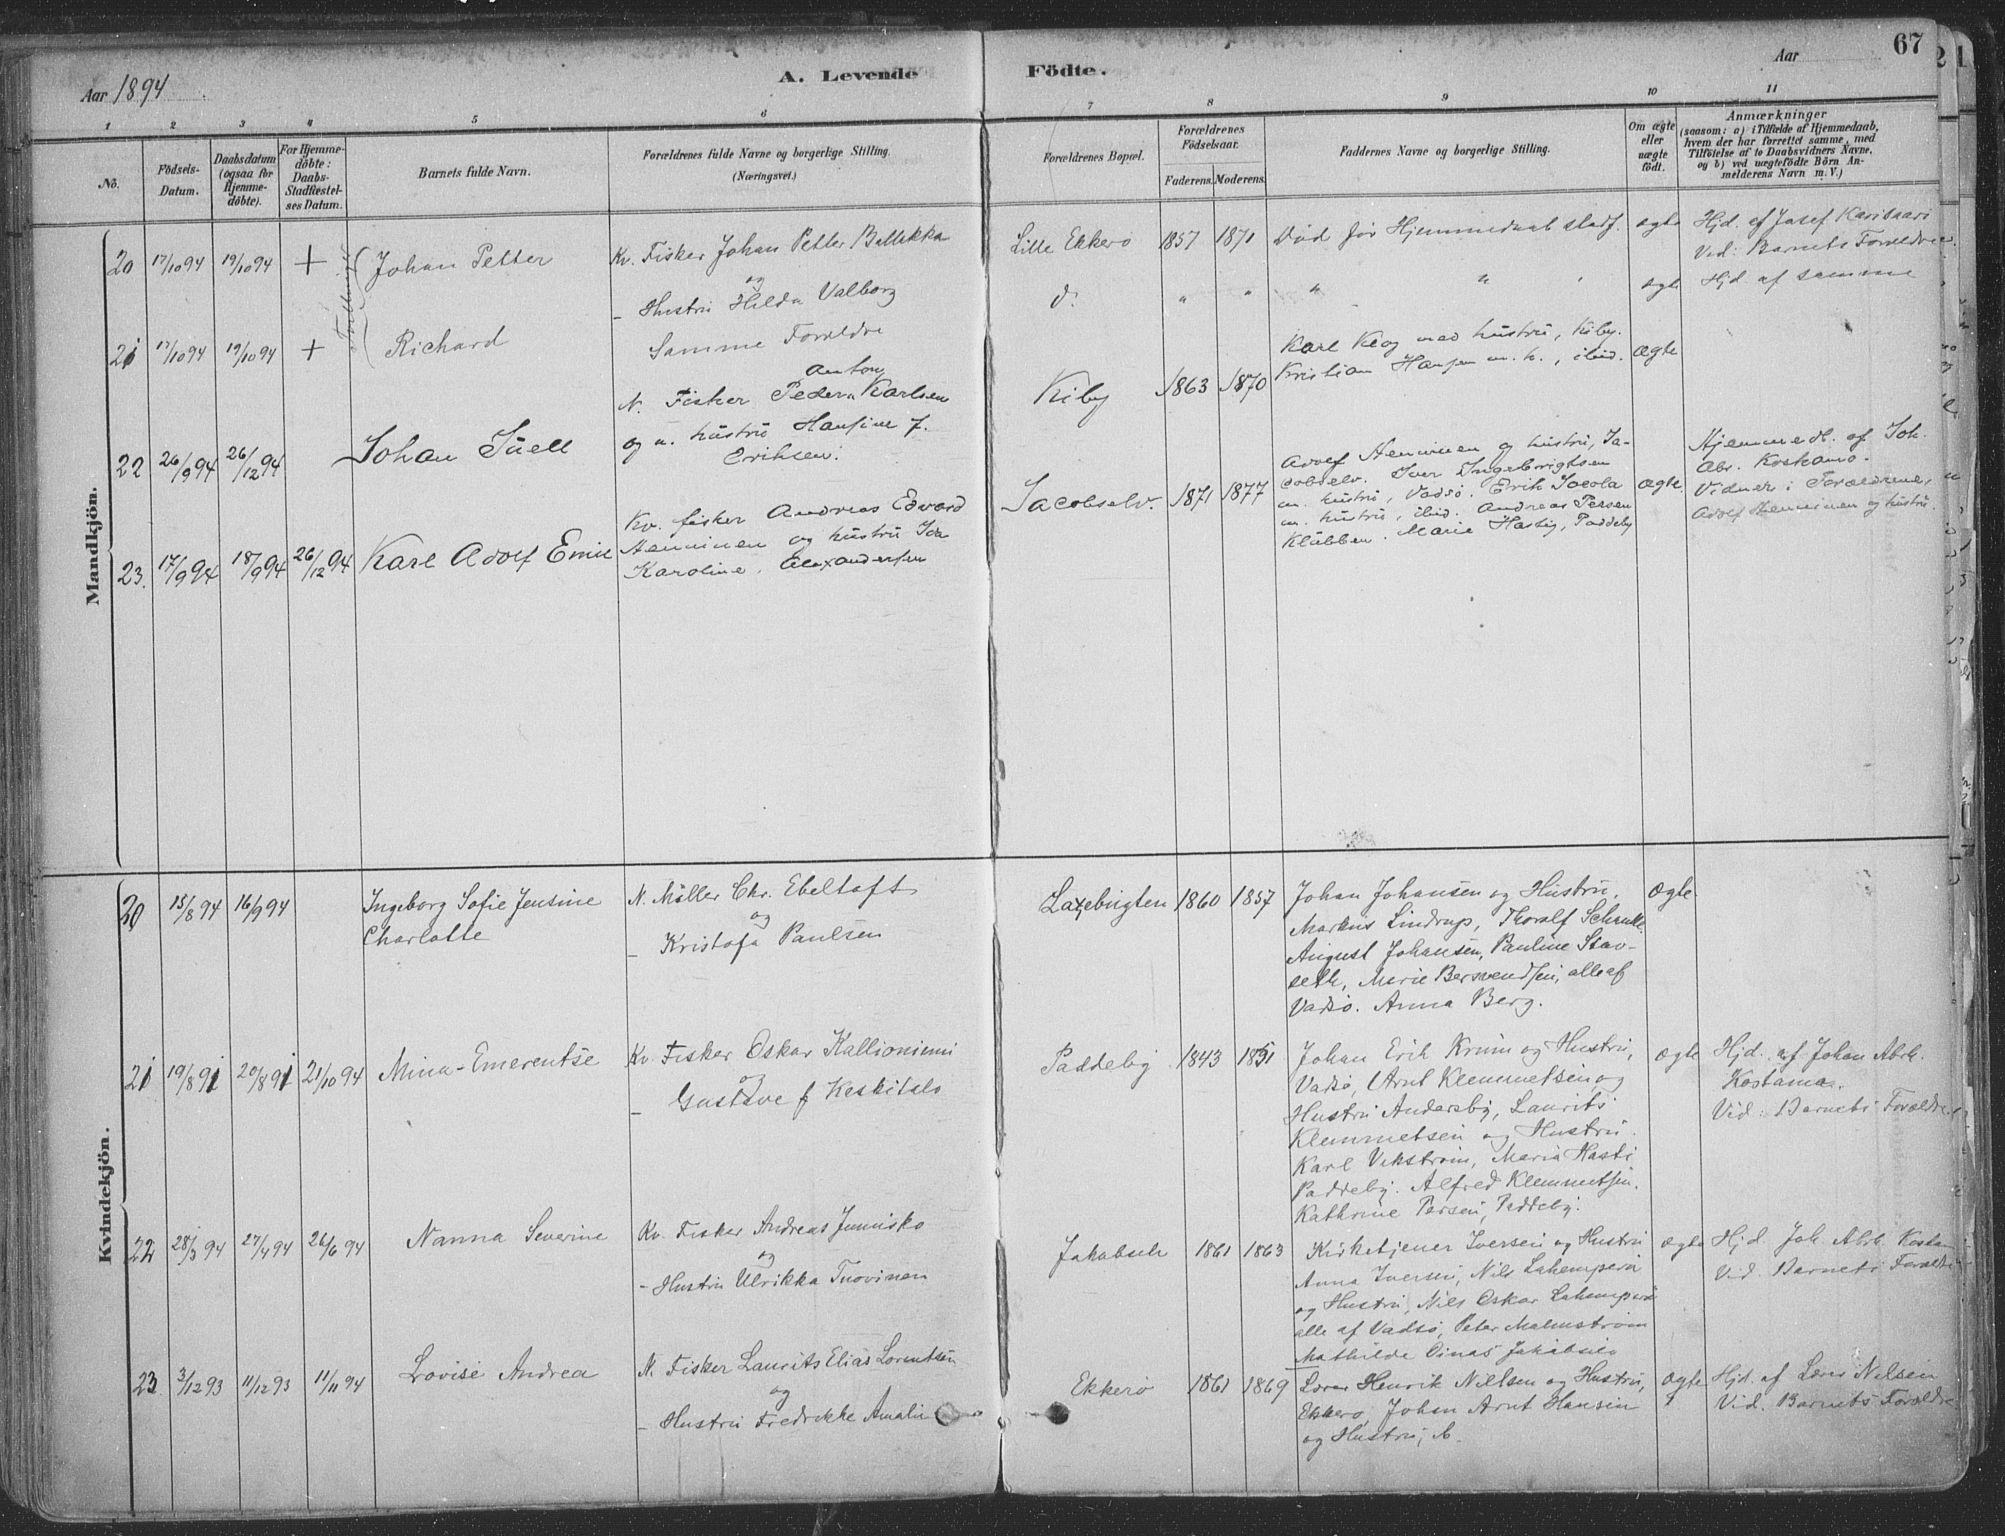 67
Aar 1894
A. Levende
Födte.
Aar
1 2 3 4 5 6 7 8 9 10 11
No.
Födsels-
Datum.
Daabsdatum
(ogsaa for
Hjemme-
döbte).
For Hjemme-
döbte:
Daabs-
Stadfæstel-
ses Datum.
Barnets fulde Navn.
Forældrenes fulde Navne og borgerlige Stilling.
(Næringsvei.)
Forældrenes Bopæl.
Forældrenes
Födselsaar.
Faderens. Moderens.
Faddernes Navne og borgerlige Stilling.
Om ægte
eller
uægte
födt.
Anmærkninger
(saasom: a) i Tilfælde af Hjemmedaab,
hvem der har forrettet samme, med
Tilföielse af to Daabsvidners Navne,
og b) ved uægtefödte Börn An-
melderens Navn m. V.)
Mandkjön.
20 17/10 94 19/10 94 + Johan Petter
Kv. Fisker Johan Petter Ballikka
og
- Hustru Hilda Valborg
Lille Ekkerö 1857 1871 Död før Hjemmedaab stadf. ægte
Hjd. af Josef Karisaari
Vid: Barnets Forældre
21 17/10 94 19/10 94 + Richard
Samme Forældre
d. " " " " ægte Hjd af samme
22 26/9 94 26/12 94 Johan Juell
Anton
N. Fisker Peder Karlsen
og n. hustru Hansine J.
Eriksen.
Kiby 1863 1870
Karl Krog med hustru, Kiby.
Kristian Hansen m. h., ibid. ægte
23. 17/9 94 18/9 94 26/12 94 Karl Adolf Emil
Kv. fisker Andreas Edvard
Henninen og hustru Ida
Karoline. Alexandersen
Jacobselv. 1871 1877
Adolf Henninen og hustru, Ja-
cobselv. Iver Ingebrigtsen
m. hustru, Vadsö. Erik Jocola
m. hustru, ibid. Andreas Persen
Klubben. Marie Hasti, Paddeby
ægte.
Hjemmedb. af Joh.
Abr. Kostamo.
Vidner: Forældrene,
Adolf Henninen og hustru.
Kvindekjön.
20 15/8 94 16/9 94 Ingeborg Sofie Jensine
Charlotte
N. Möller Chr. Ebeltoft
og
- Kristofa Paulsen
Laxebugten 1860 1857
Johan Johansen og Hustru,
Markus Lindrup, Thoralf
August Johansen, Pauline Stav-
seth, Marie Bersvendsen, alle af
Vadsö. Anna Berg.
Ægte.
21 19/8 91 20/8 91 21/10 94 Mina-Emerentse
Kv. Fisker Oskar Kallioniemi
og
- Gustave f Keskitalo
Paddeby 1843 1851
Johan Erik Krum og Hustru,
Vadsö, Arnt Klemmetsen og
Hustru Andersby, Laurits
Klemmetsen og Hustru
Karl Vikström, Maria Hasti
Paddeby. Alfred Klemmetsen.
Kathrine Persen, Paddeby.
ægte
Hjd. af Johan Abrh.
Kostama.
Vid: Barnets Forældre
22 28/3 94 27/4 94 26/6 94 Nanna Severine
Kv. Fisker Andreas Junnisko
og
- Hustru Ulrikka Tuovinen
Jakobselv 1861 1863
Kirketjener Iversen og Hustru
Anna Iversen, Nils Lahenperä
og Hustru, Nils Oskar Lahenperä
alle af Vadsö, Peter Malmström
Mathilde Oinas Jakobselv
ægte
Hjd. Joh. Abrh. Kostam
Vid. Barnets Forældre
23 3/12 93 11/12 93 11/11 94 Lovise Andrea
N. Fisker Laurits Elias Lorentsen
og
- Hustru Fredrikke Amalie
Ekkerö 1861 1869
Lærer Henrik Nielsen og Hustru,
Ekkerö, Johan Arnt Hansen
og Hustru,
ægte
Hjd. af Lærer Nilsen
Vid. Barnets Forældre